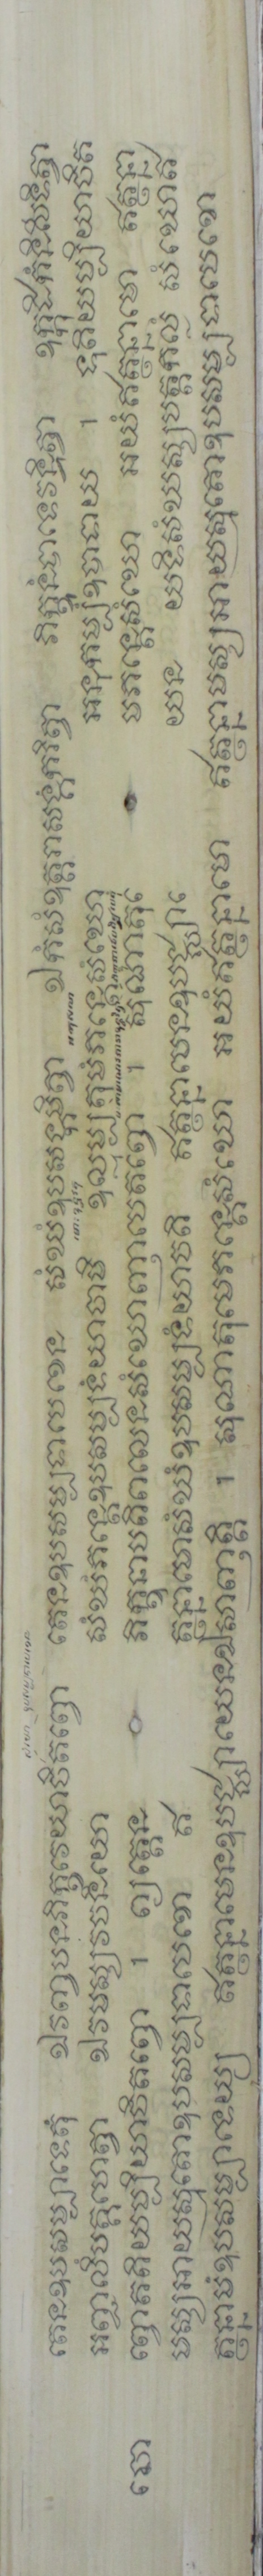 តេនឧបសម្បាទេតុំ ឯវញ្ចបនភិក្ខវេយាចិតព្ពោ តេនឧបសម្បទាបេខេន សំឃំឧបសង្កមិត្វា ឯកំសំឧត្តរាសង្គំករិត្វា ភិក្ខូនំបាទេវន្ទិត្វា ឧក្កុដិកំនិសីទិត្វា
អញ្ជលឹបគ្គហេត្វា ឯវមស្សវចនីយោ សំឃំភន្តេឧបសម្បទំយាចាមិ ឧល្លុម្បតុមំភន្តេសំឃោ អនុកម្បំឧបាទាយ ។ ទុតិយម្បិយាចិត
ព្ពោតតិយម្បិយាចិតព្ពោ ។ ព្យត្តេន ភិក្ខុនាបដិពលេនសំឃោញាបេតព្ពោ ។ សុណាតុមេ មភន្តេសំឃោ អយំឥត្ថន្នាមោ ឥត្ថន្នា
មស្សអាយស្មតោឧបសម្បទាបេខោ ឥ ត្ថន្នាមោសំឃំឧបសម្បទំយាចតិ ឥត្ថន្នាមេនឧបជ្ឈាយេ យន យទិសំឃស្សបត្តកល្លំ សំឃោឥ
ត្ថន្នាមំឧបសម្បាទេយ្យ ឥត្ថន្នាមេនឧបជ្ឈាយេនឯសាញត្តិ ។ សុណាតុមេភន្តេសំឃោ អយំឥត្ថន្នាមោ ឥត្ថន្នាមស្សអាយស្មតោឧបសម្បទាបេខោ